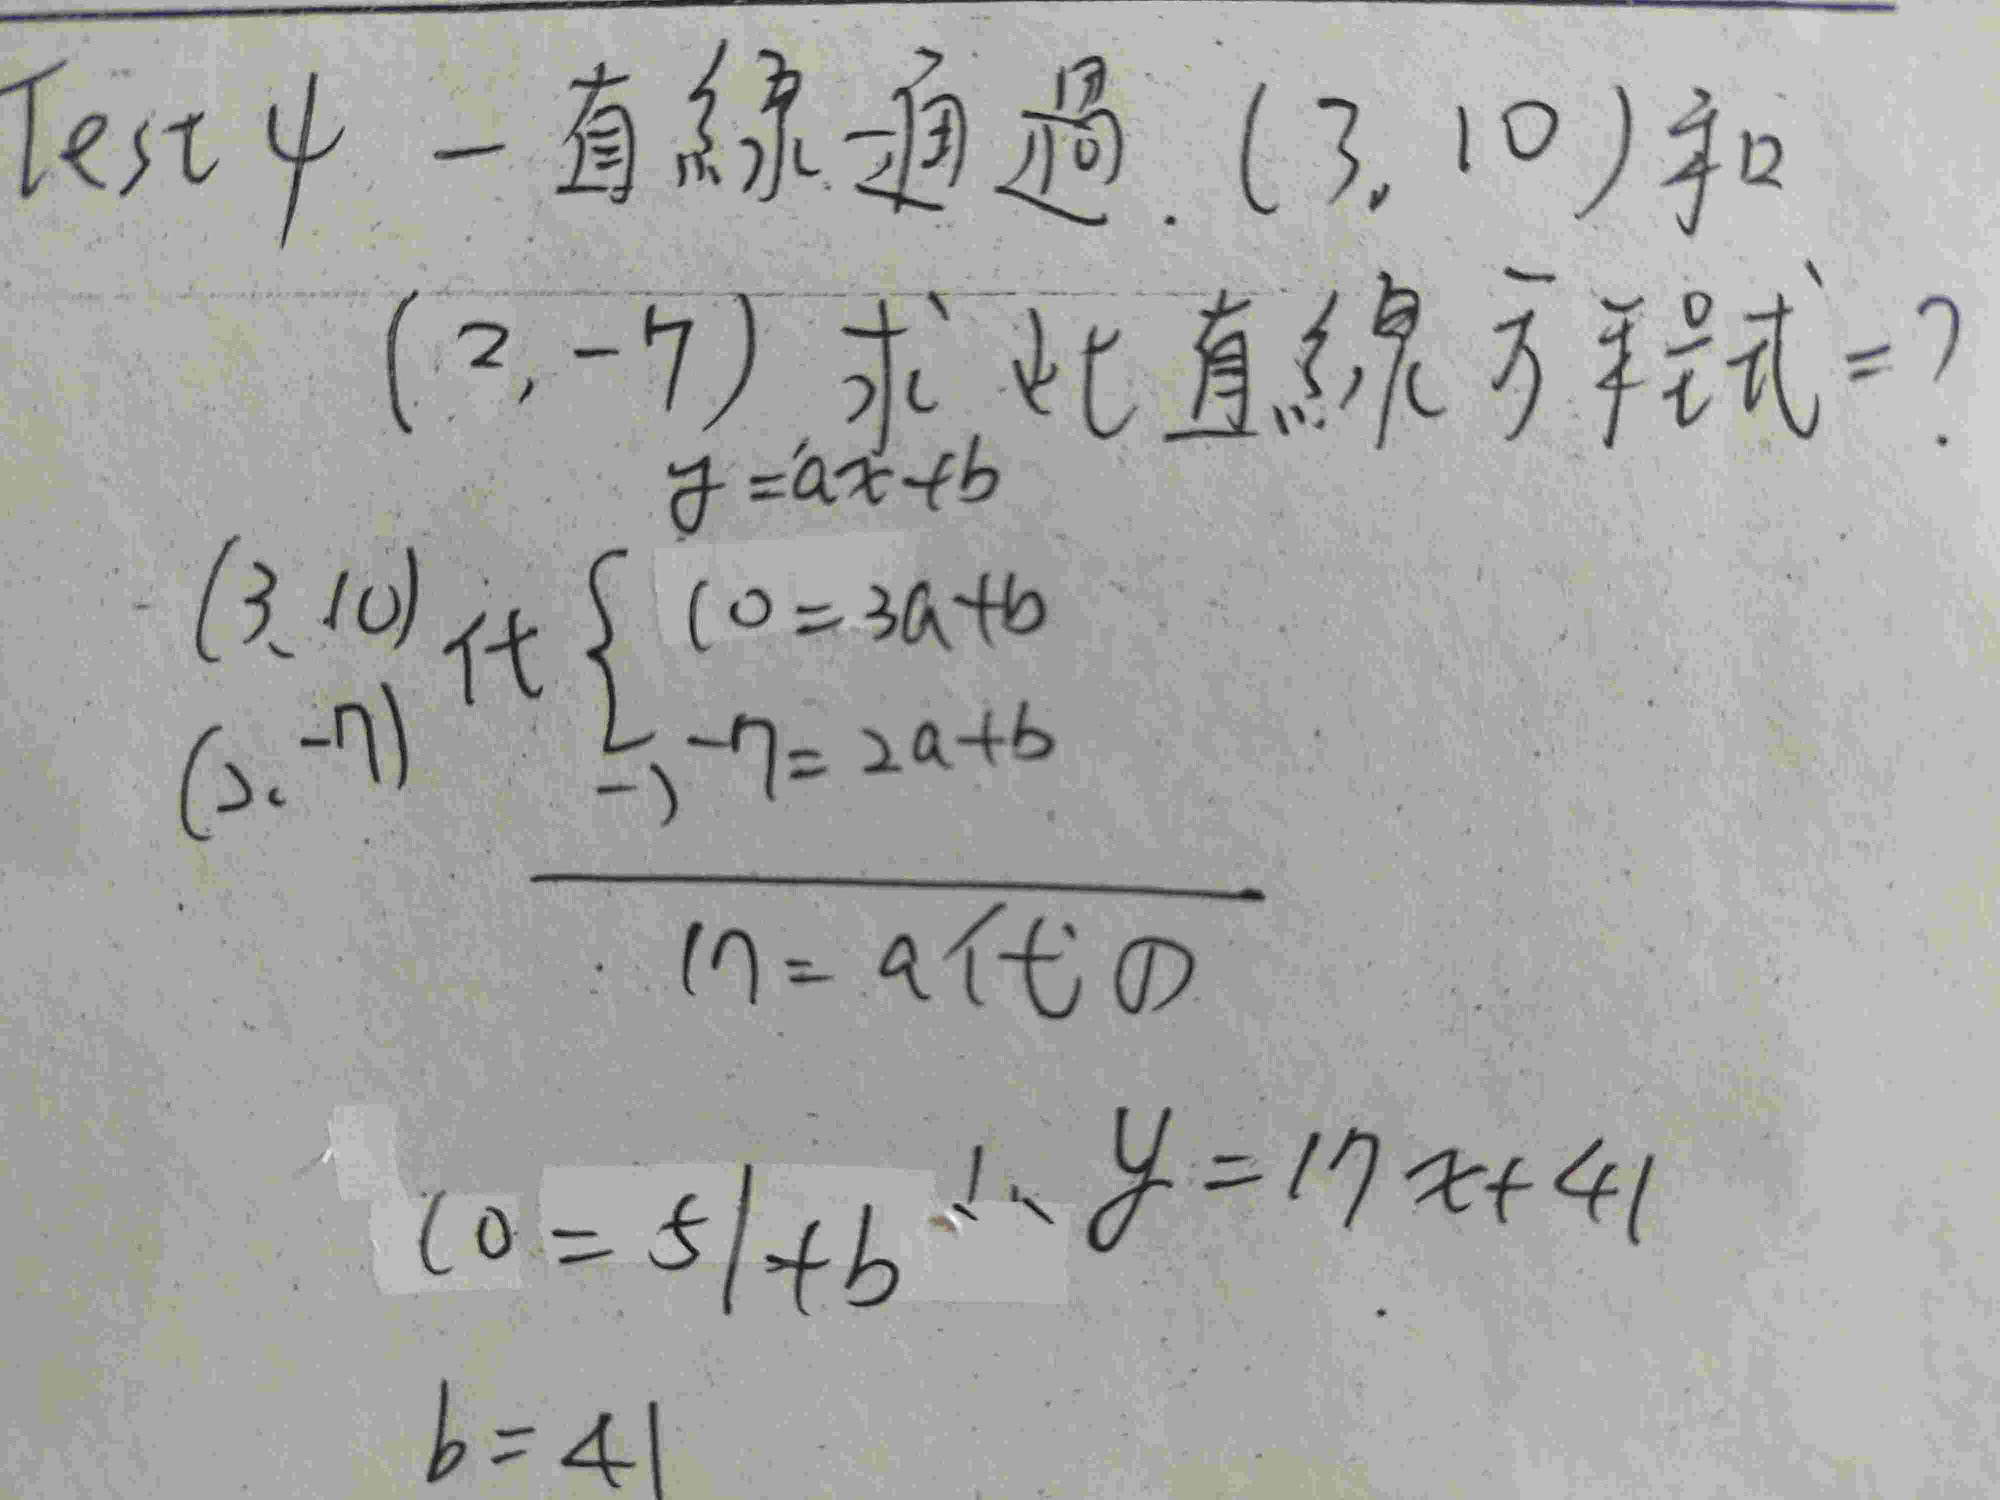 Test 4 一直線通過.(3,10)和
(2,-7)求此直線方程式=?
y=ax+b
(3,10) 代 { 10=3a+b
(2,-7) -) -7=2a+b
17=a代①
10=51+b ∴ y=17x+41
b=41